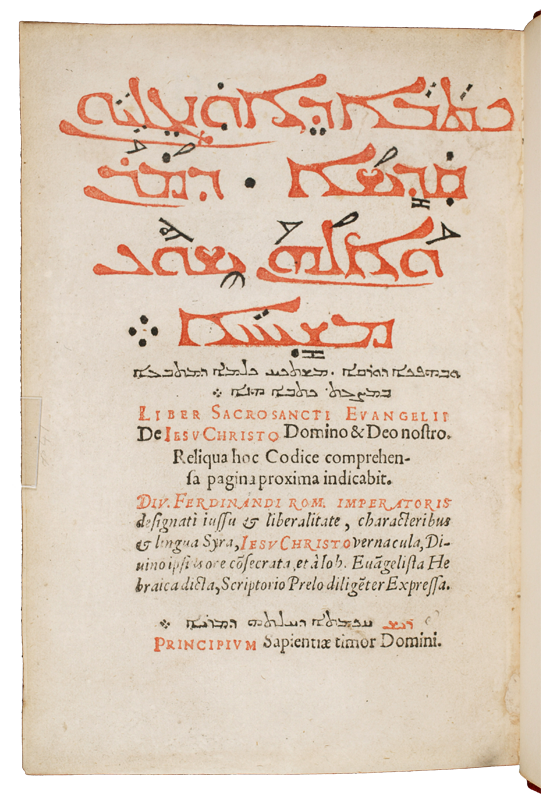 ܟܬܒܐ ܕܐܘܢܓܠܝܘܢ
ܩܕܝܫܐ . ܕܡܪܢ
ܘܐܠܗܢ ܝܫܘܥ
ܡܫܝܚܐ
LIBER SACROSANCTI EVANGELII
De IESV CHRISTO Domino & Deo nostro.
Reliqua hoc Codice comprehen-
sa pagina proxima indicabit.
DIV. FERDINANDI ROM. IMPERATORIS
designati iussu & liberalitate, characteribus
& lingua Syra, IESV CHRISTO vernacula, Di-
uino ipsius ore cõsecrata, et à Ioh. Euãgelista He
braica dicta, Scriptorio Prelo diligẽter Expressa.
ܪܝܫ ܚܟܡܬܐ ܕܚܠܬܗ ܕܡܪܝܐ
PRINCIPIVM Sapientiæ timor Domini.